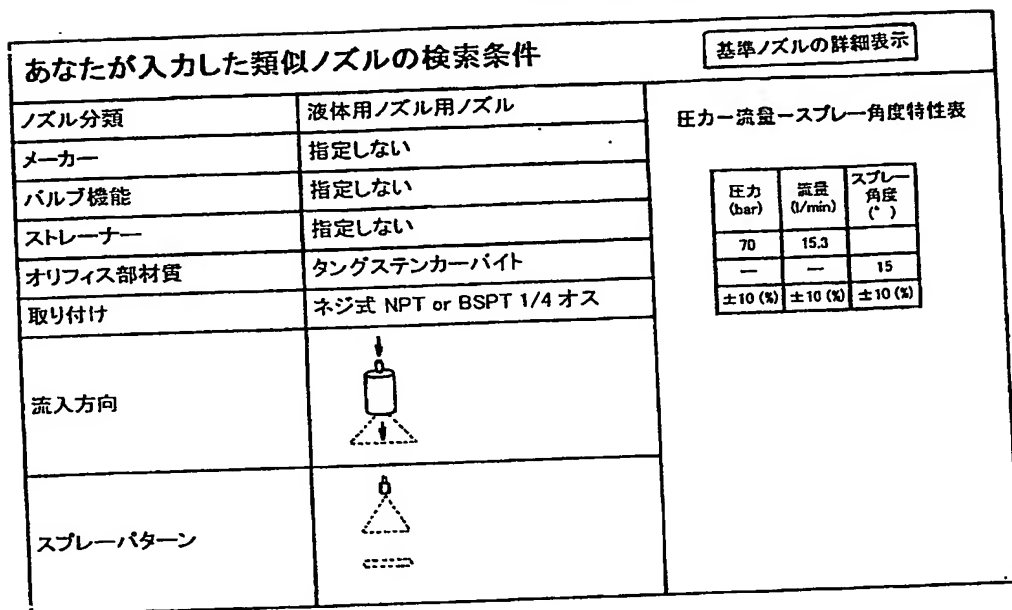 あなたが入力した類似ノズルの検索条件
基準ノズルの詳細表示
ノズル分類 液体用ノズル用ノズル
メーカー 指定しない
バルブ機能 指定しない
ストレーナー 指定しない
オリフィス部材質 タングステンカーバイト
取り付け ネジ式 NPT or BSPT 1/4 オス
流入方向
スプレーパターン
圧力ー流量ースプレー角度特性表
圧力 (bar) 流量 (l/min) スプレー角度 (°)
70 15.3
— — 15
±10 (%) ±10 (%) ±10 (%)